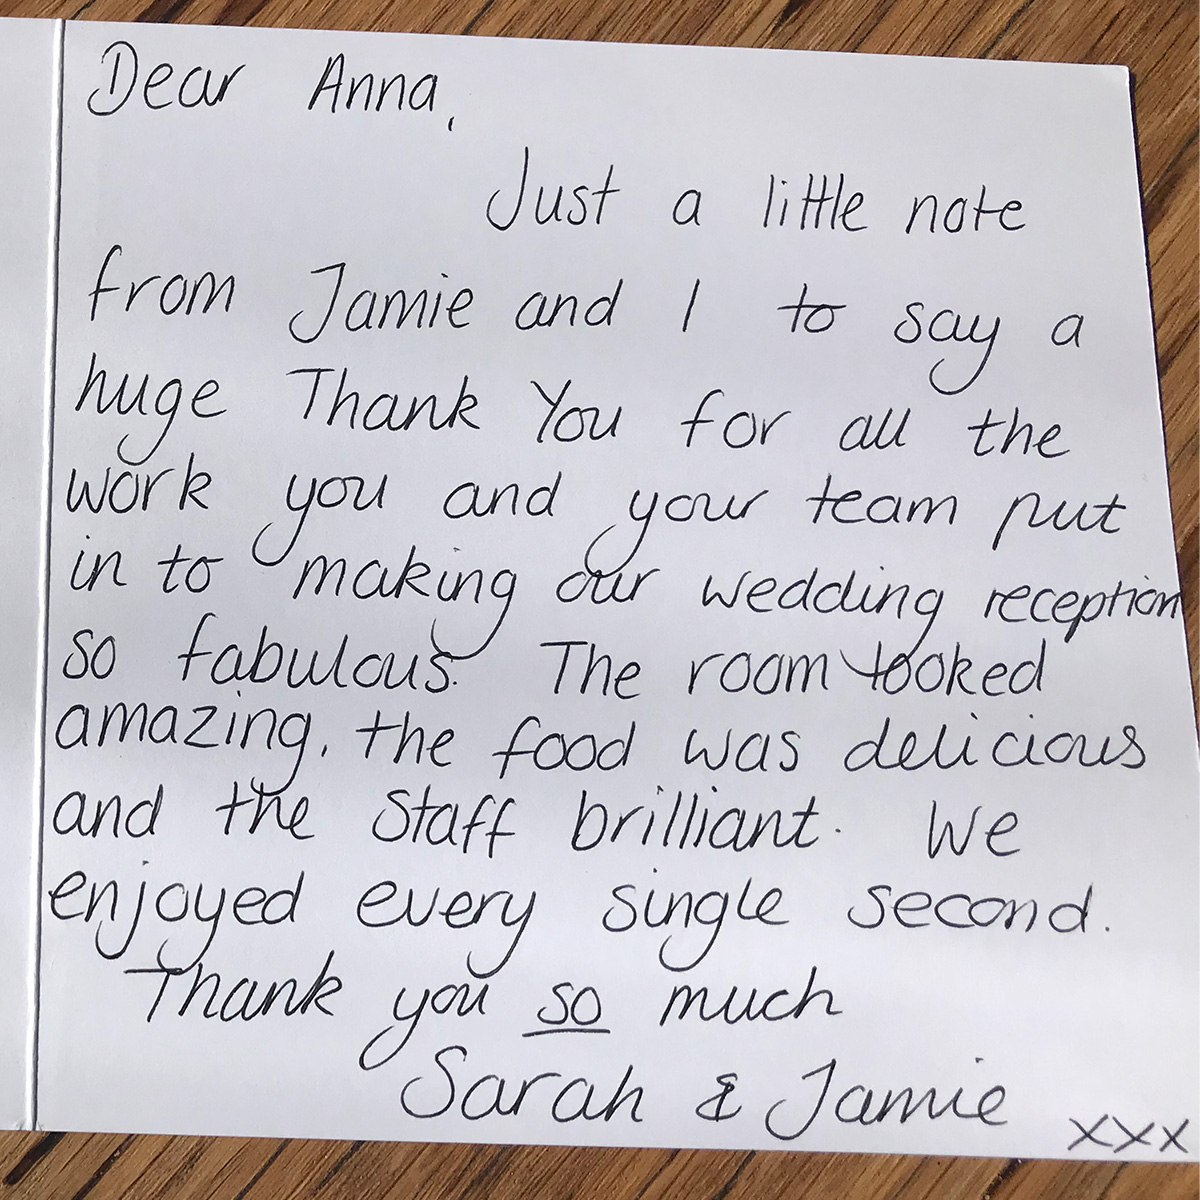 Dear Anna,
Just a little note
from Jamie and I to say a
huge Thank You for all the
work you and your team put
in to making our wedding reception
so fabulous. The room looked
amazing, the food was delicious
and the staff brilliant. We
enjoyed every single second.
Thank you so much
Sarah & Jamie
xxx